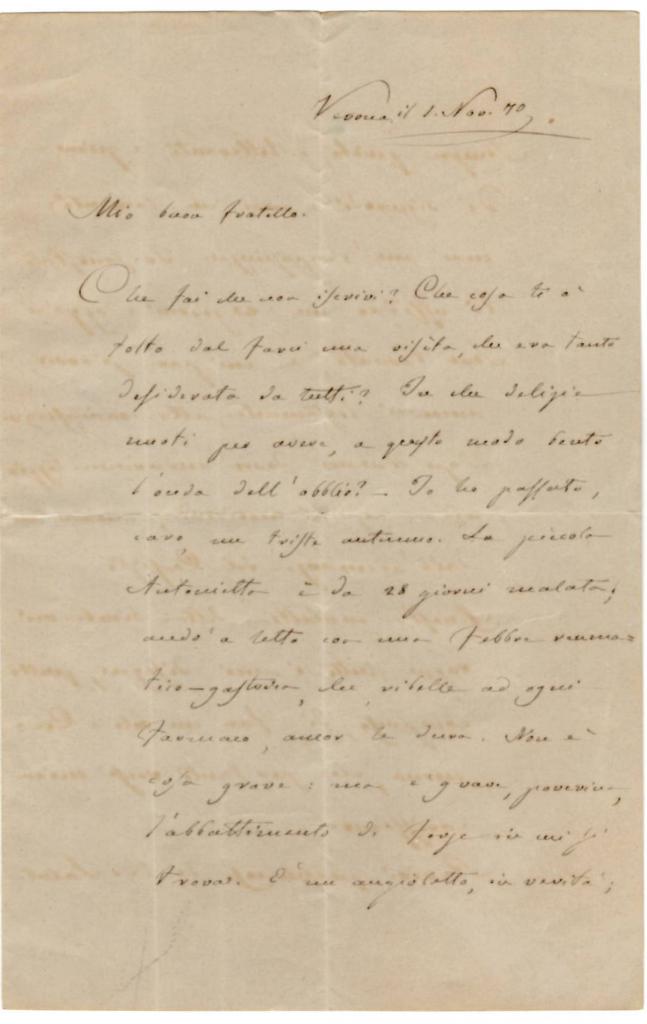 Verona, il 1. Nov. 70.
Mio buon fratello.
Che fai che non iscrivi? Che cosa ti à
tolto dal farci una visita, che era tanto
desiderata da tutti? Tu che
per avere, a questo modo bevuto
l'onda dell'obblio? - Io ho passato,
caro, un triste autunno. La piccola
Antonietta è da 28 giorni malata;
andò a letto con una febbre reuma=
tico-gastrica, che, ribelle ad ogni
farmaco, ancor le dura. Non è
cosa grave: ma è grave, poverina,
l'abbattimento di forze in cui si
trova. È un angioletto, in verità;